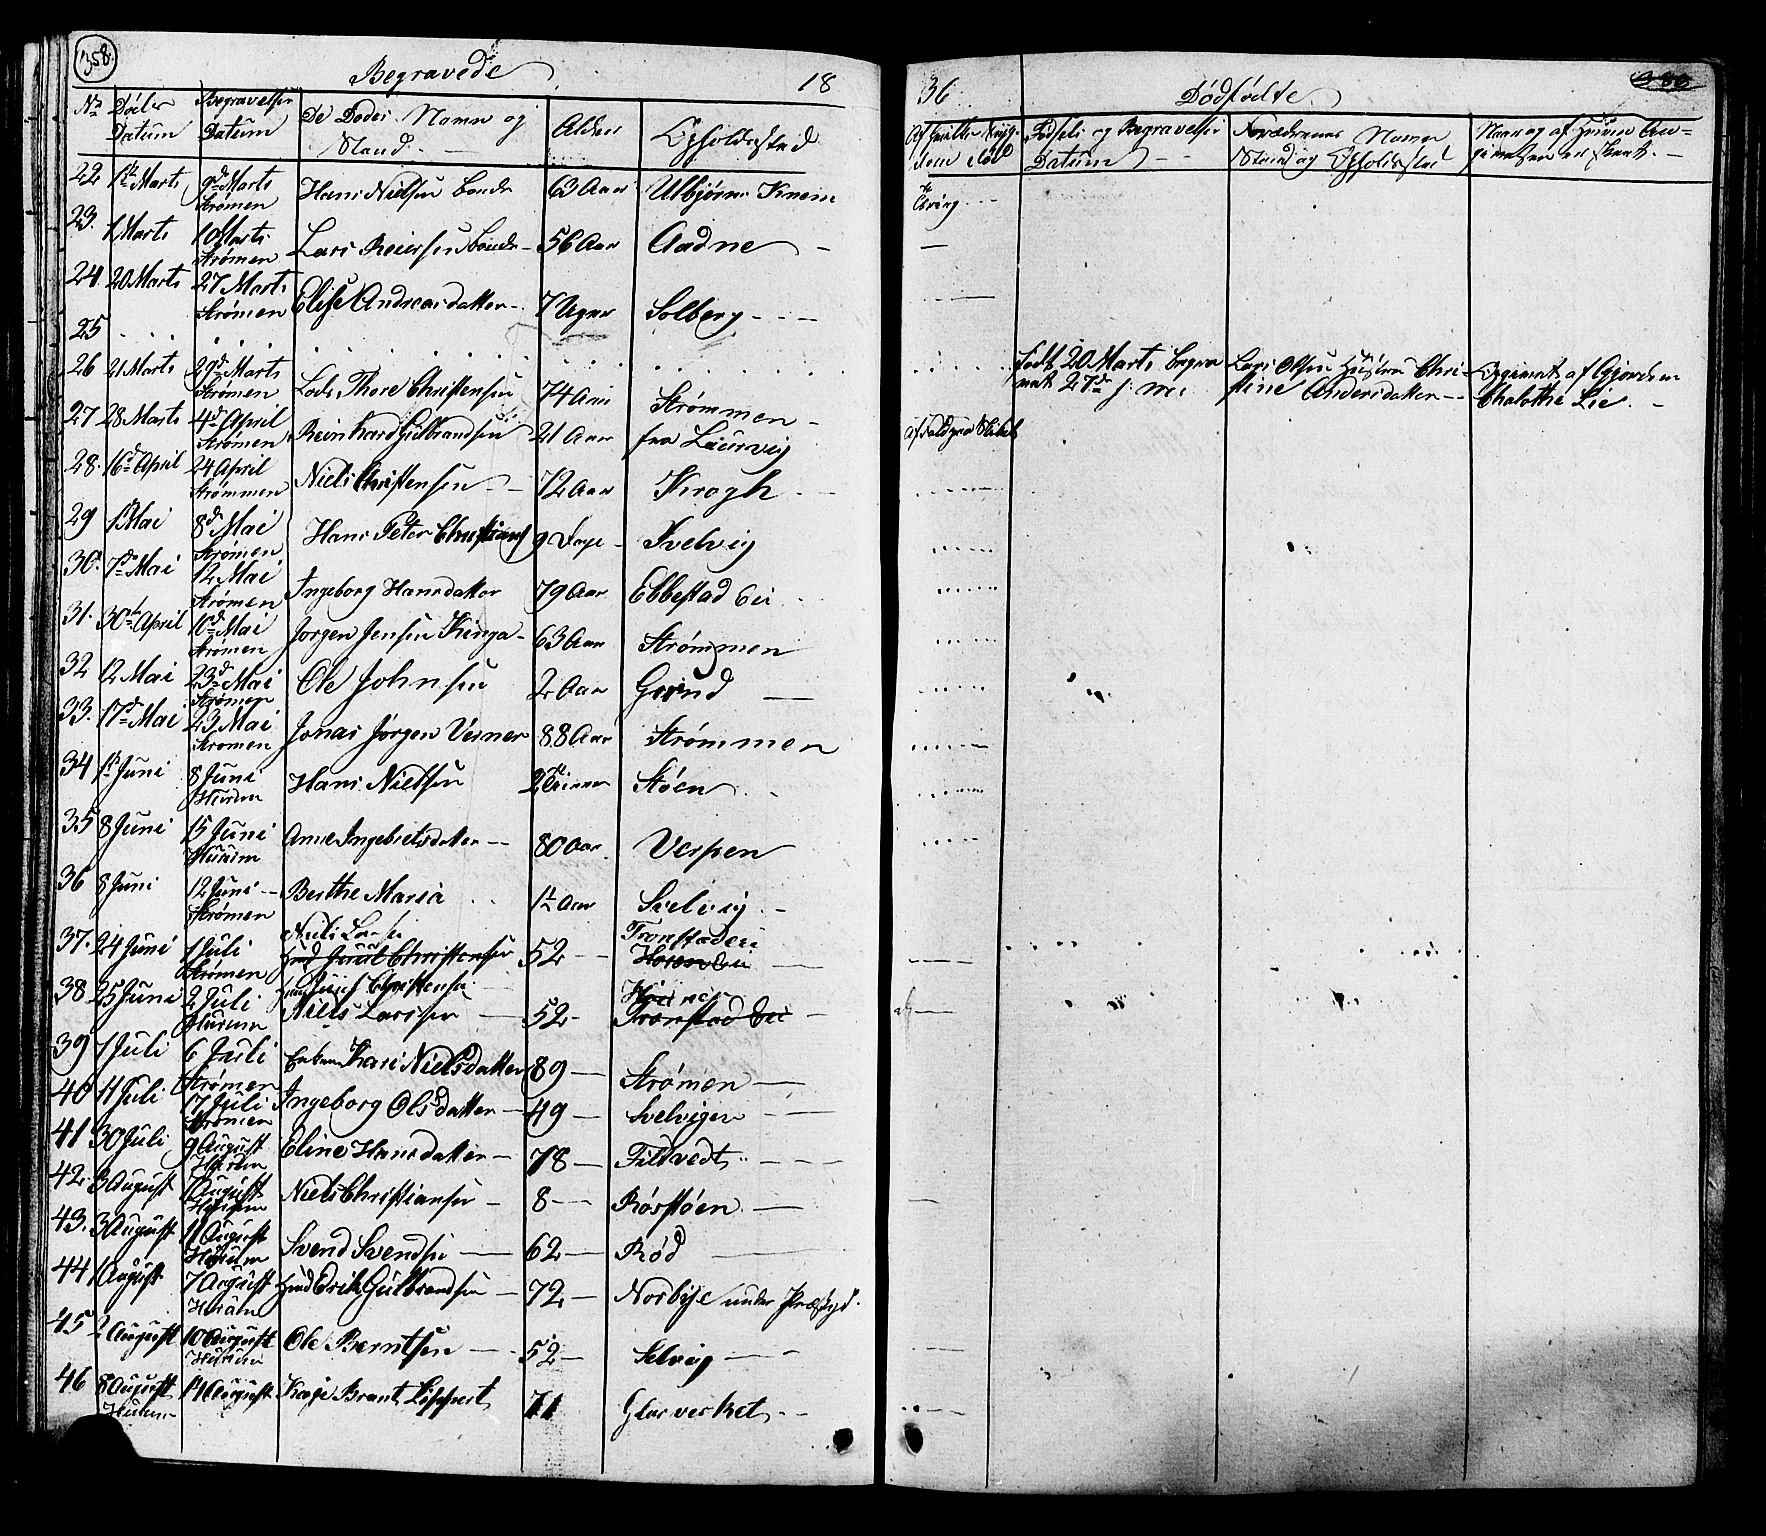 358.
Begravede 18
No Døds Datum Begravelses Datum De Dødes Navn og Stand. Alder Opholdssted
22 1ste Marts 9de Marts Strömen Hans Nielsen bonde 63 Aar Ulbjørns Knem
23. 1 Marts 10 Marts Strömen Lars Reiersen bonde 56 Aar Aadne
24. 20 Marts 27 Marts Strömen Elise Andreasdatter 7 Uger Solberg
25
26 21 Marts 29de Marts Strömen Lods Thore Christensen 74 Aar Strømmen
27 28 Marts 4de April Strömen Reinhard Gulbrandsen 21 Aar fra Laurvig
28. 16de April 24 April Strømmen Niels Christensen 72 Aar Krogh
29 1ste Mai 8de Mai Strömen Hans Peter Christians 9 Dage Svelvig
30. 7de Mai 12 Mai Strömen Ingeborg Hansdatter 79 Aar Ebbestad Eie
31. 30te April 10de Mai Strömen Jørgen Jensen 63 Aar Strømmen
32 12 Mai 23de Mai Strömen Ole Johnsen 2 Aar Grund
33. 17de Mai 23 Mai Stromen Jonas Jørgen Verner 88 Aar Strømmen
34 1ste Juni 8 Juni Hurum Hans Nielsen Støen
35 8 Juni 15 Juni Hurum Anne Ingebretsdatter 80 Aar Verpen
36 8 Juni 12 Juni Strömen Berthe Maria 1½ Aar Svelvig
37. 24 Juni 1 Juli Strömen Niels Larsen 52 Tronstad Eie
Christensen
38 25 Juni 2 Juli Hurum Juul Christensen
Niels Larsen 52 Tronstad Eie
39 1 Juli 6 Juli Strömen Enken Kari Nielsdatter 89 Strömen
40 11 Juli 17 Juli Strömen Ingeborg Olsdatter 49 Svelvigen
41 30 Juli 9 August Hurum Eline Hansdatter 78 Filtvedt
42. 3 August 7 August Hurum Niels Christiansen 8 Rørstøen
43. 3 August 11 August Hurum Svend Svendsen 62 Rød
44 1 August 7 August Hurum Erik Gulbrandsen 72 Norbye under
45 2 August 10 August Hurum Ole Berntsen 52 Selvig
46 8 August Hurum 14 August Kaje Brant Lippert 71 Glasverket
36 Dødfødte
Af hvilken Syg-
dom død Fødsels og Begravelses Datum Forældrenes Navne Stand og Opholdssted Naar og af hvem An-
givelsen er skeet.
født 20 Marts begra-
vet 27de s: m: Lars Olsen Hustru Chri-
stine Andersdatter Opgivet af Gjordem
Chalothe Lie.